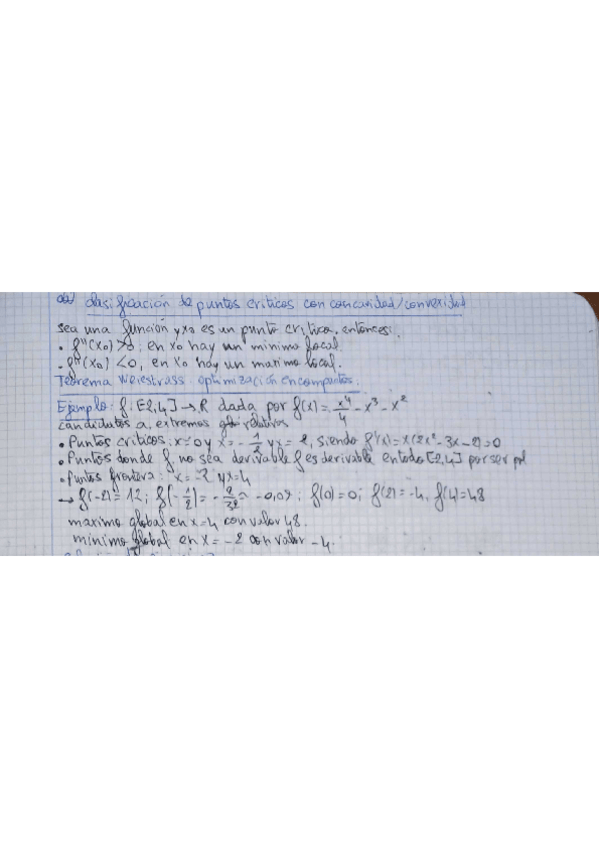 clasificación de puntos criticos con concavidad/convexidad
sea una función y x0 es un punto critico, entonces:
• f''(x0) >0, en x0 hay un minimo local
• f''(x0) <0, en x0 hay un maximo local.
Teorema Weiestrass: optimización en compactos.
Ejemplo: f: [-2,4] → R dada por f(x) = x⁴/4 - x³ - x²
candidatos a extremos relativos
• Puntos criticos: x=0 y x = -1/2 y x = 2, siendo f'(x) = x(2x² - 3x - 2) = 0
• Puntos donde f no sea derivable f es derivable en todo [-2,4] por ser pol
• Puntos frontera: x = -2 y x=4
→ f(-2) = 12; f(-1/2) = -2/32 ≈ -0,09; f(0) = 0; f(2) = -4, f(4) = 48
maximo global en x=4 con valor 48.
minimo global en x = -2 con valor -4.